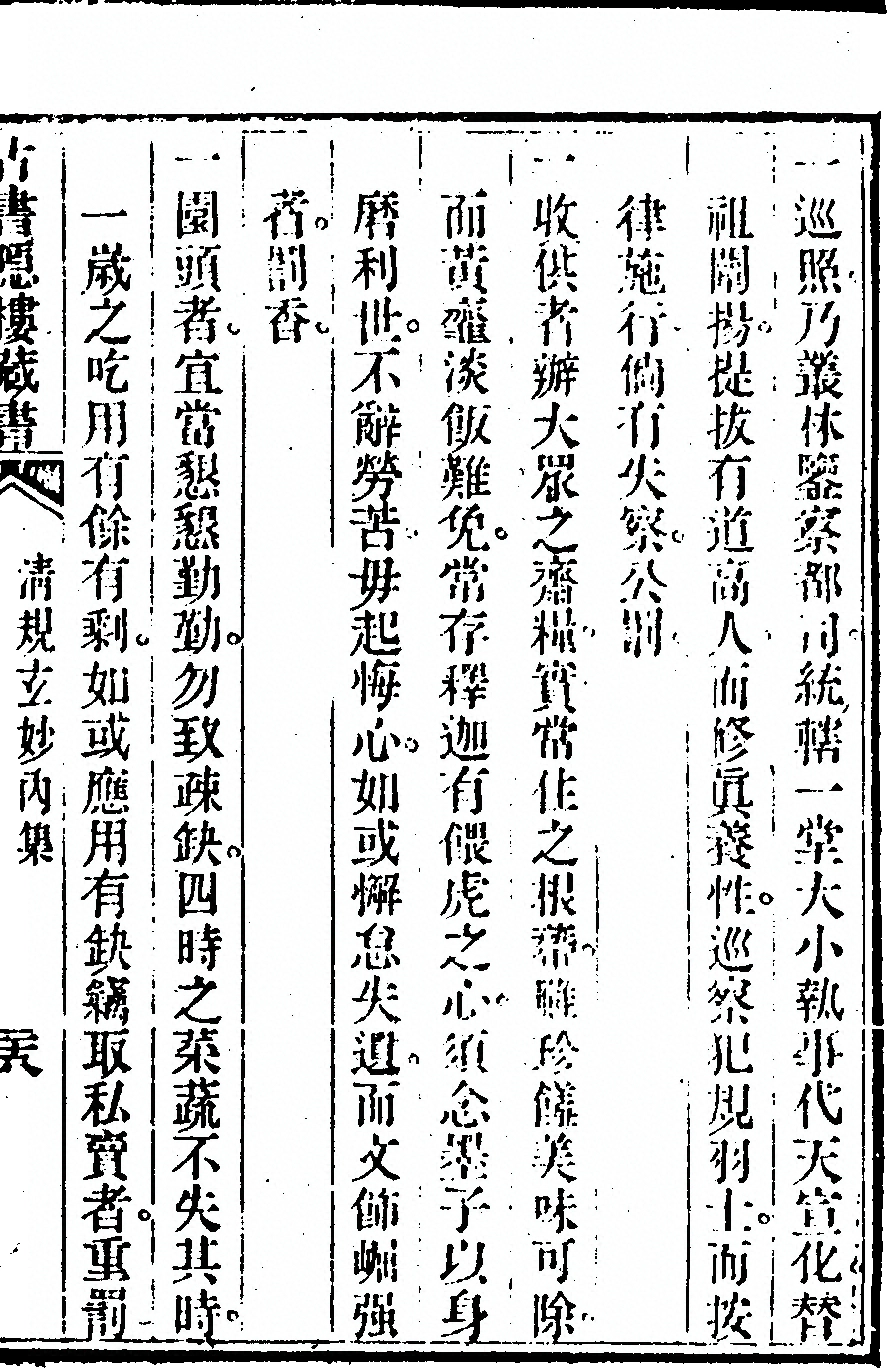 一巡照乃叢林鑒察都司統轄一堂大小執事代天宣化替
祖闡揚。提拔有道高人。而修眞養性。巡察犯規羽士。而按
律施行。倘有失察。公罰。
一收供者辦大眾之齋糧。實常住之根蒂。雖珍饈美味可除。
而黃虀淡飯難免。常存釋迦有偎虎之心。須念墨子以身
磨利世。不辭勞苦。毋起悔心。如或懈怠失迥。而文飾崛强
者。罰香。
一園頭者。宜當懇懇勤勤。勿致疎缺。四時之菜蔬不失其時。
一歲之吃用有餘有剩。如或應用有缺竊取私賣者。重罰
古書隱樓藏書
清規玄妙內集